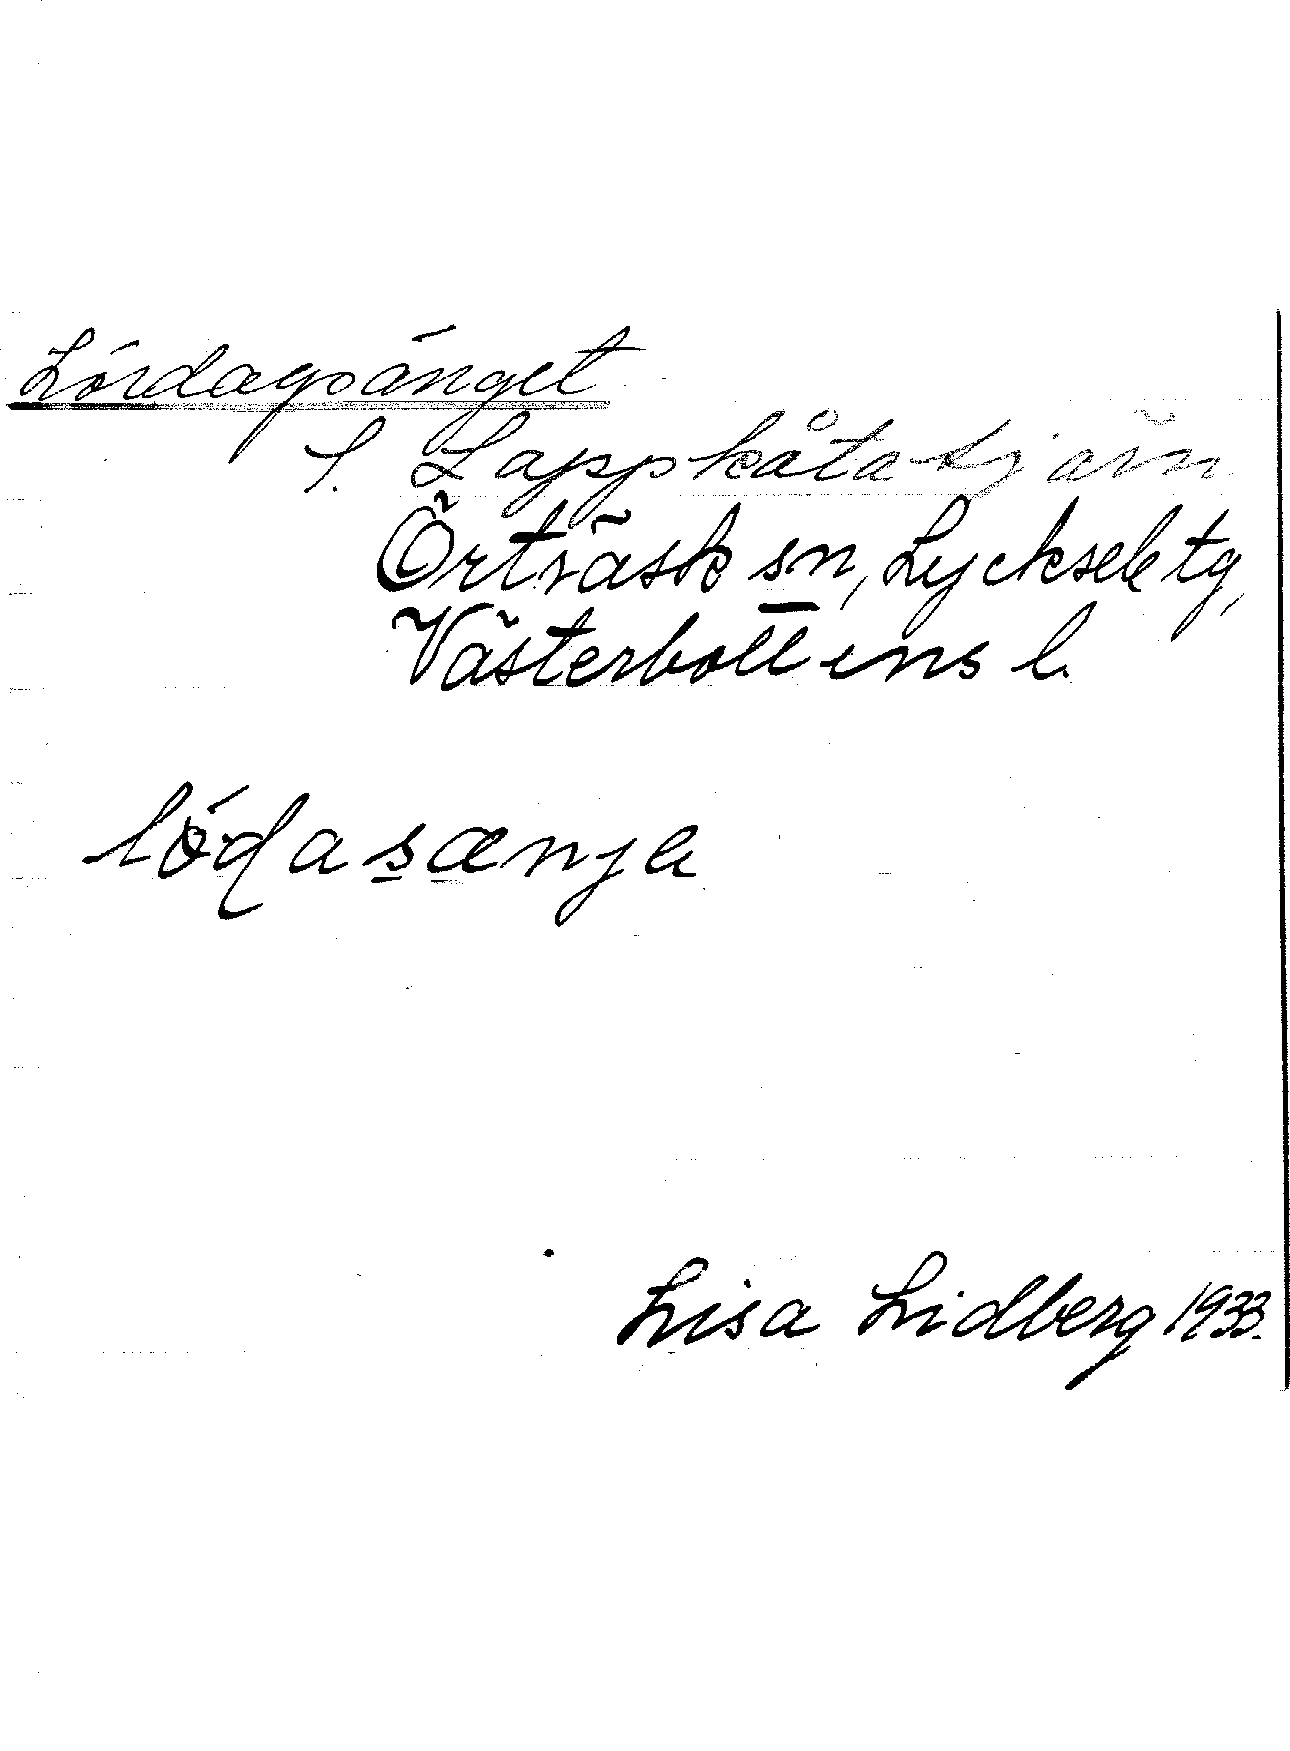 Lördagsänget
l. Lappkåtatjärn
Örträsk sn, Lycksele tg,
Västerbottens l.
lódasænje
Lisa Lidberg 1933.